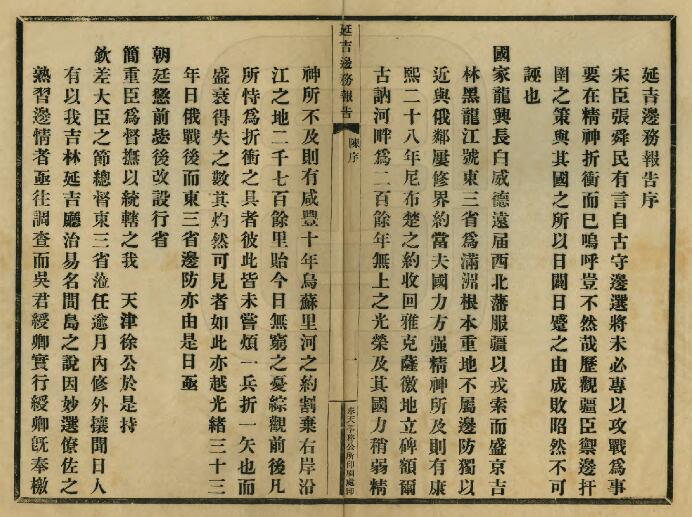 延吉邊務報告序
宋臣張舜民有言自古守邊選將未必專以攻戰爲事
要在精神折衝而巳嗚呼豈不然哉歷觀疆臣禦邊扞
圉之策與其國之所以日闢日蹙之由成敗昭然不可
誣也
國家龍興長白威德遠届西北藩服疆以戎索而盛京吉
林黑龍江號東三省爲滿洲根本重地不屬邊防獨以
近與俄鄰屢修界約當夫國力方强精神所及則有康
熙二十八年尼布楚之約收回雅克薩徼地立碑額爾
古訥河畔爲二百餘年無上之光榮及其國力稍弱精
延吉邊務報告
陳序
一
奉天學務公所印刷處印
神所不及則有咸豐十年烏蘇里河之約割棄右岸沿
江之地二千七百餘里貽今日無窮之憂綜觀前後凡
所恃爲折衝之具者彼此皆未嘗煩一兵折一矢也而
盛衰得失之數其灼然可見者如此亦越光緒三十三
年日俄戰後而東三省邊防亦由是日亟
朝廷懲前毖後改設行省
簡重臣爲督撫以統轄之我　天津徐公於是持
欽差大臣之節總督東三省蒞任逾月內修外攘聞日人
有以我吉林延吉廳治易名間島之說因妙選僚佐之
熟習邊情者亟往調查而吳君綬卿實行綬卿旣奉檄